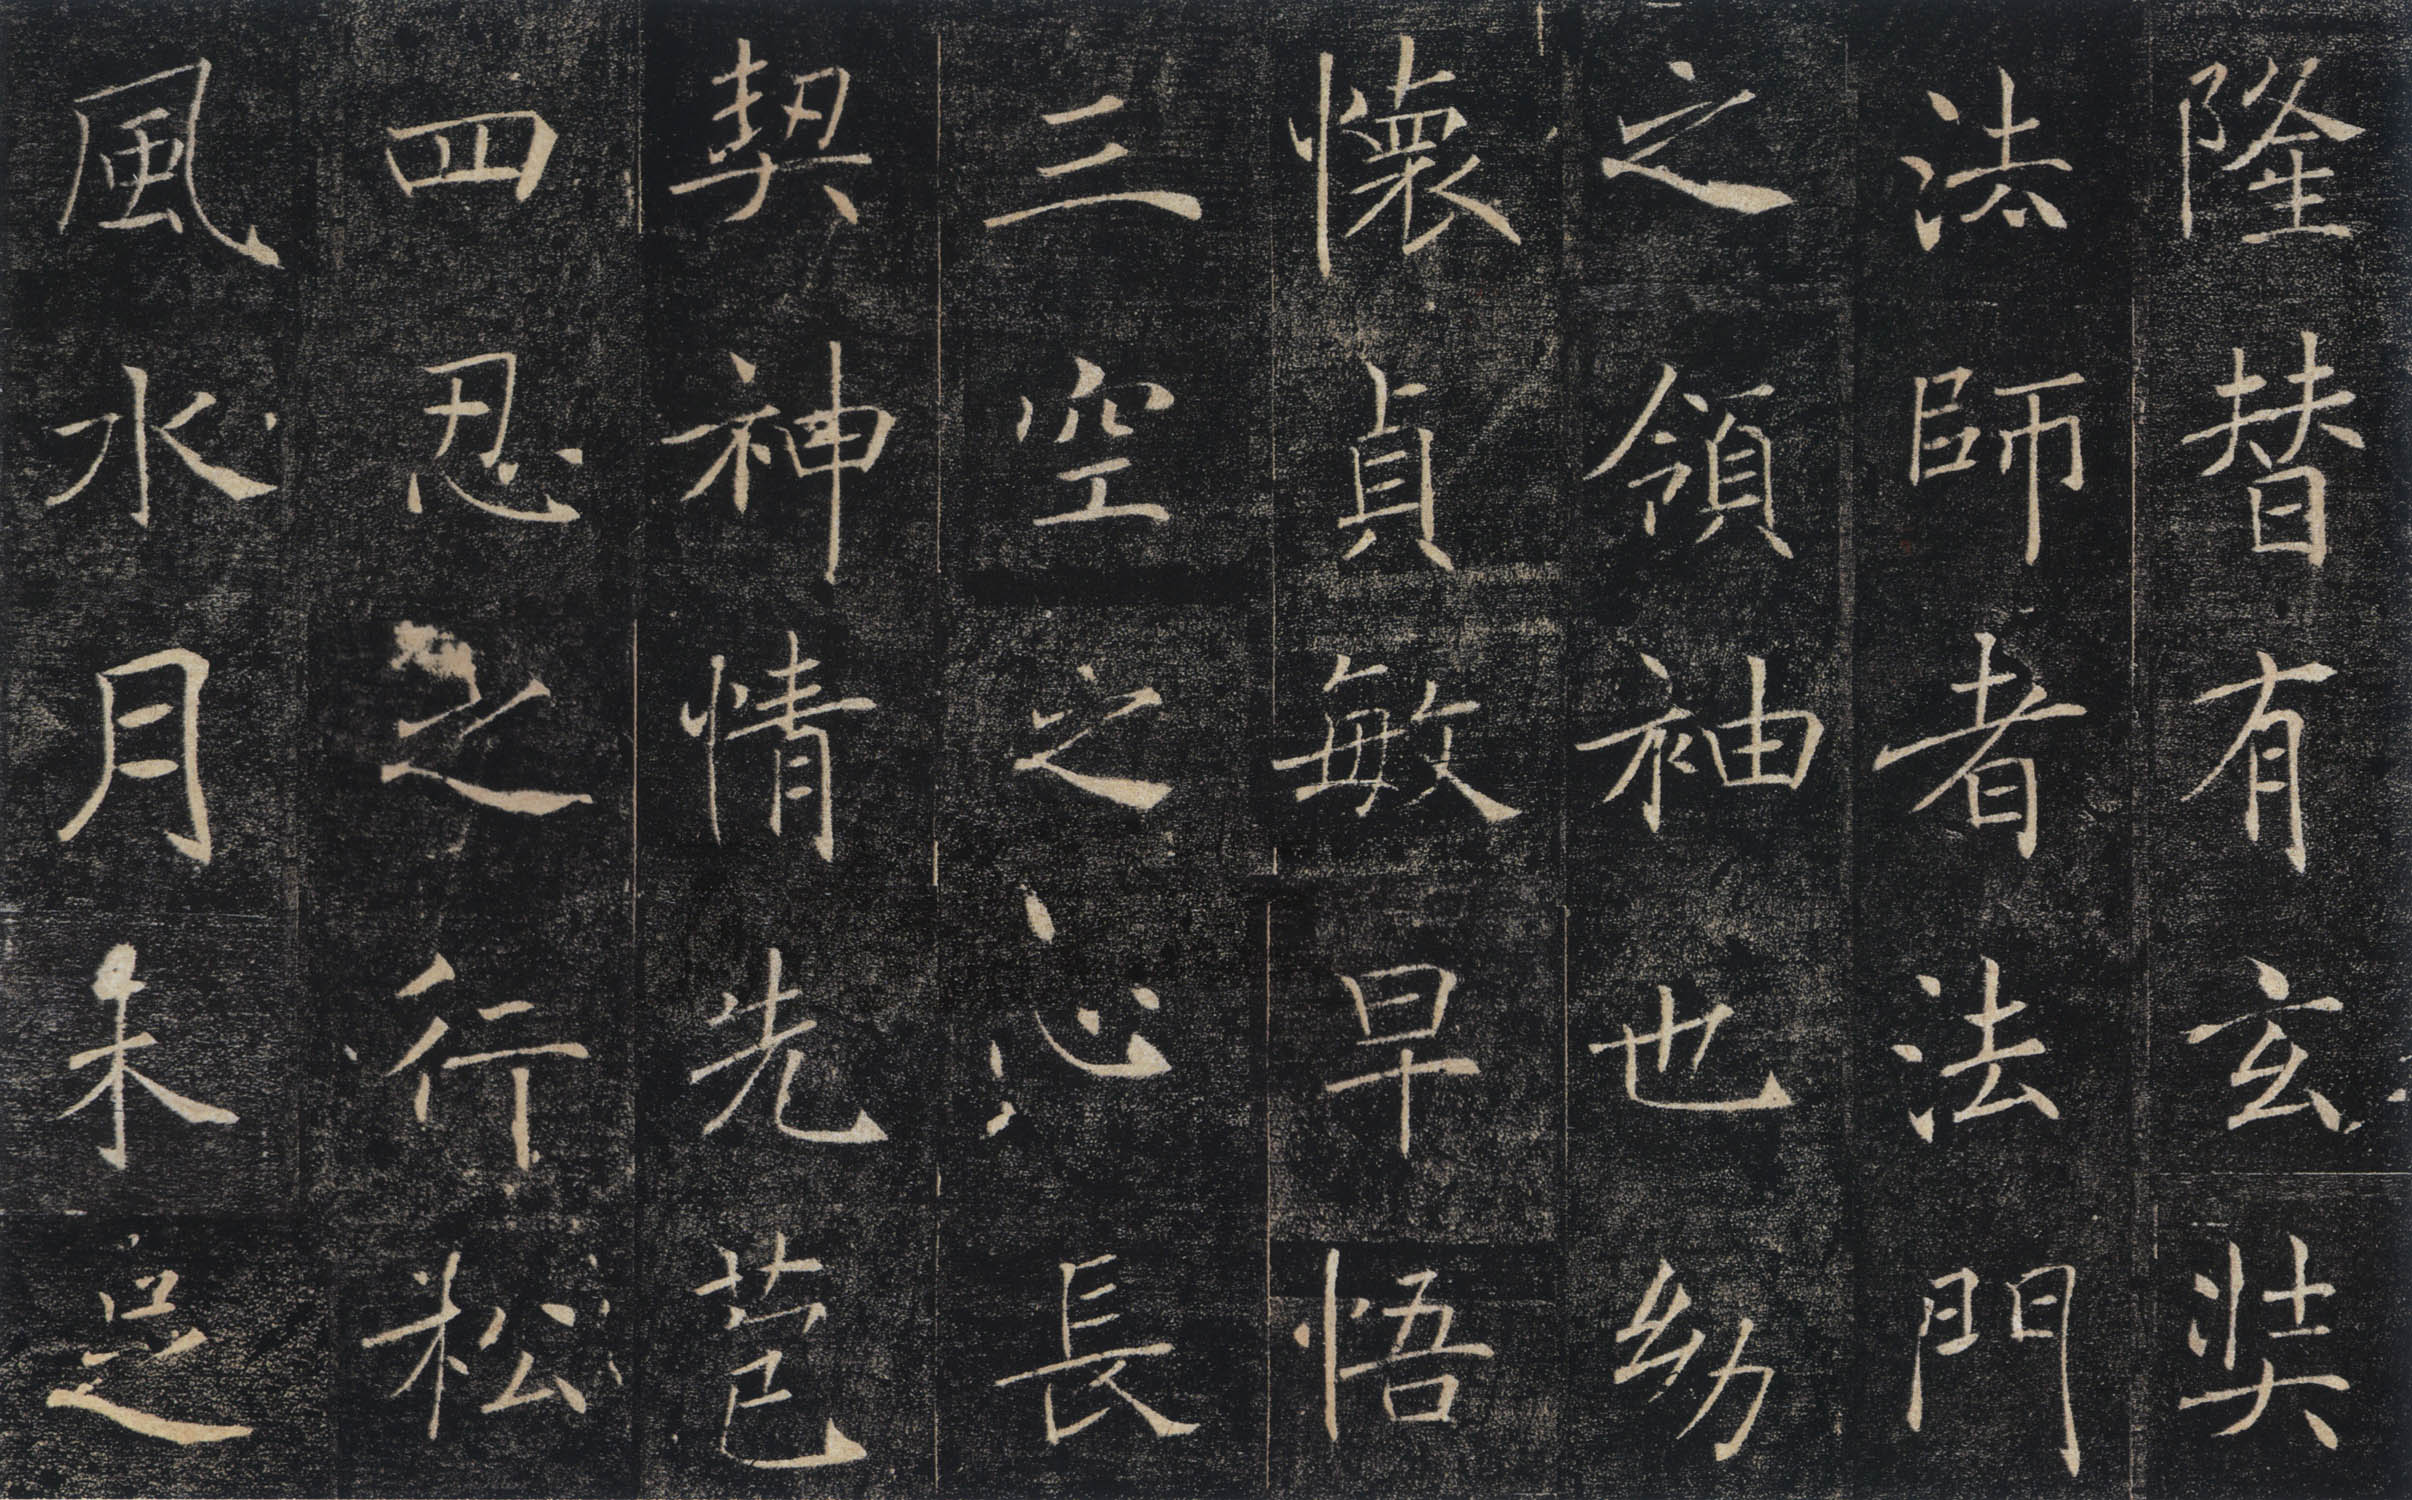 隆替有玄奘
法師者法門
之領袖也幼
懷貞敏早悟
三空之心長
契神情先苞
四忍之行松
風水月未足